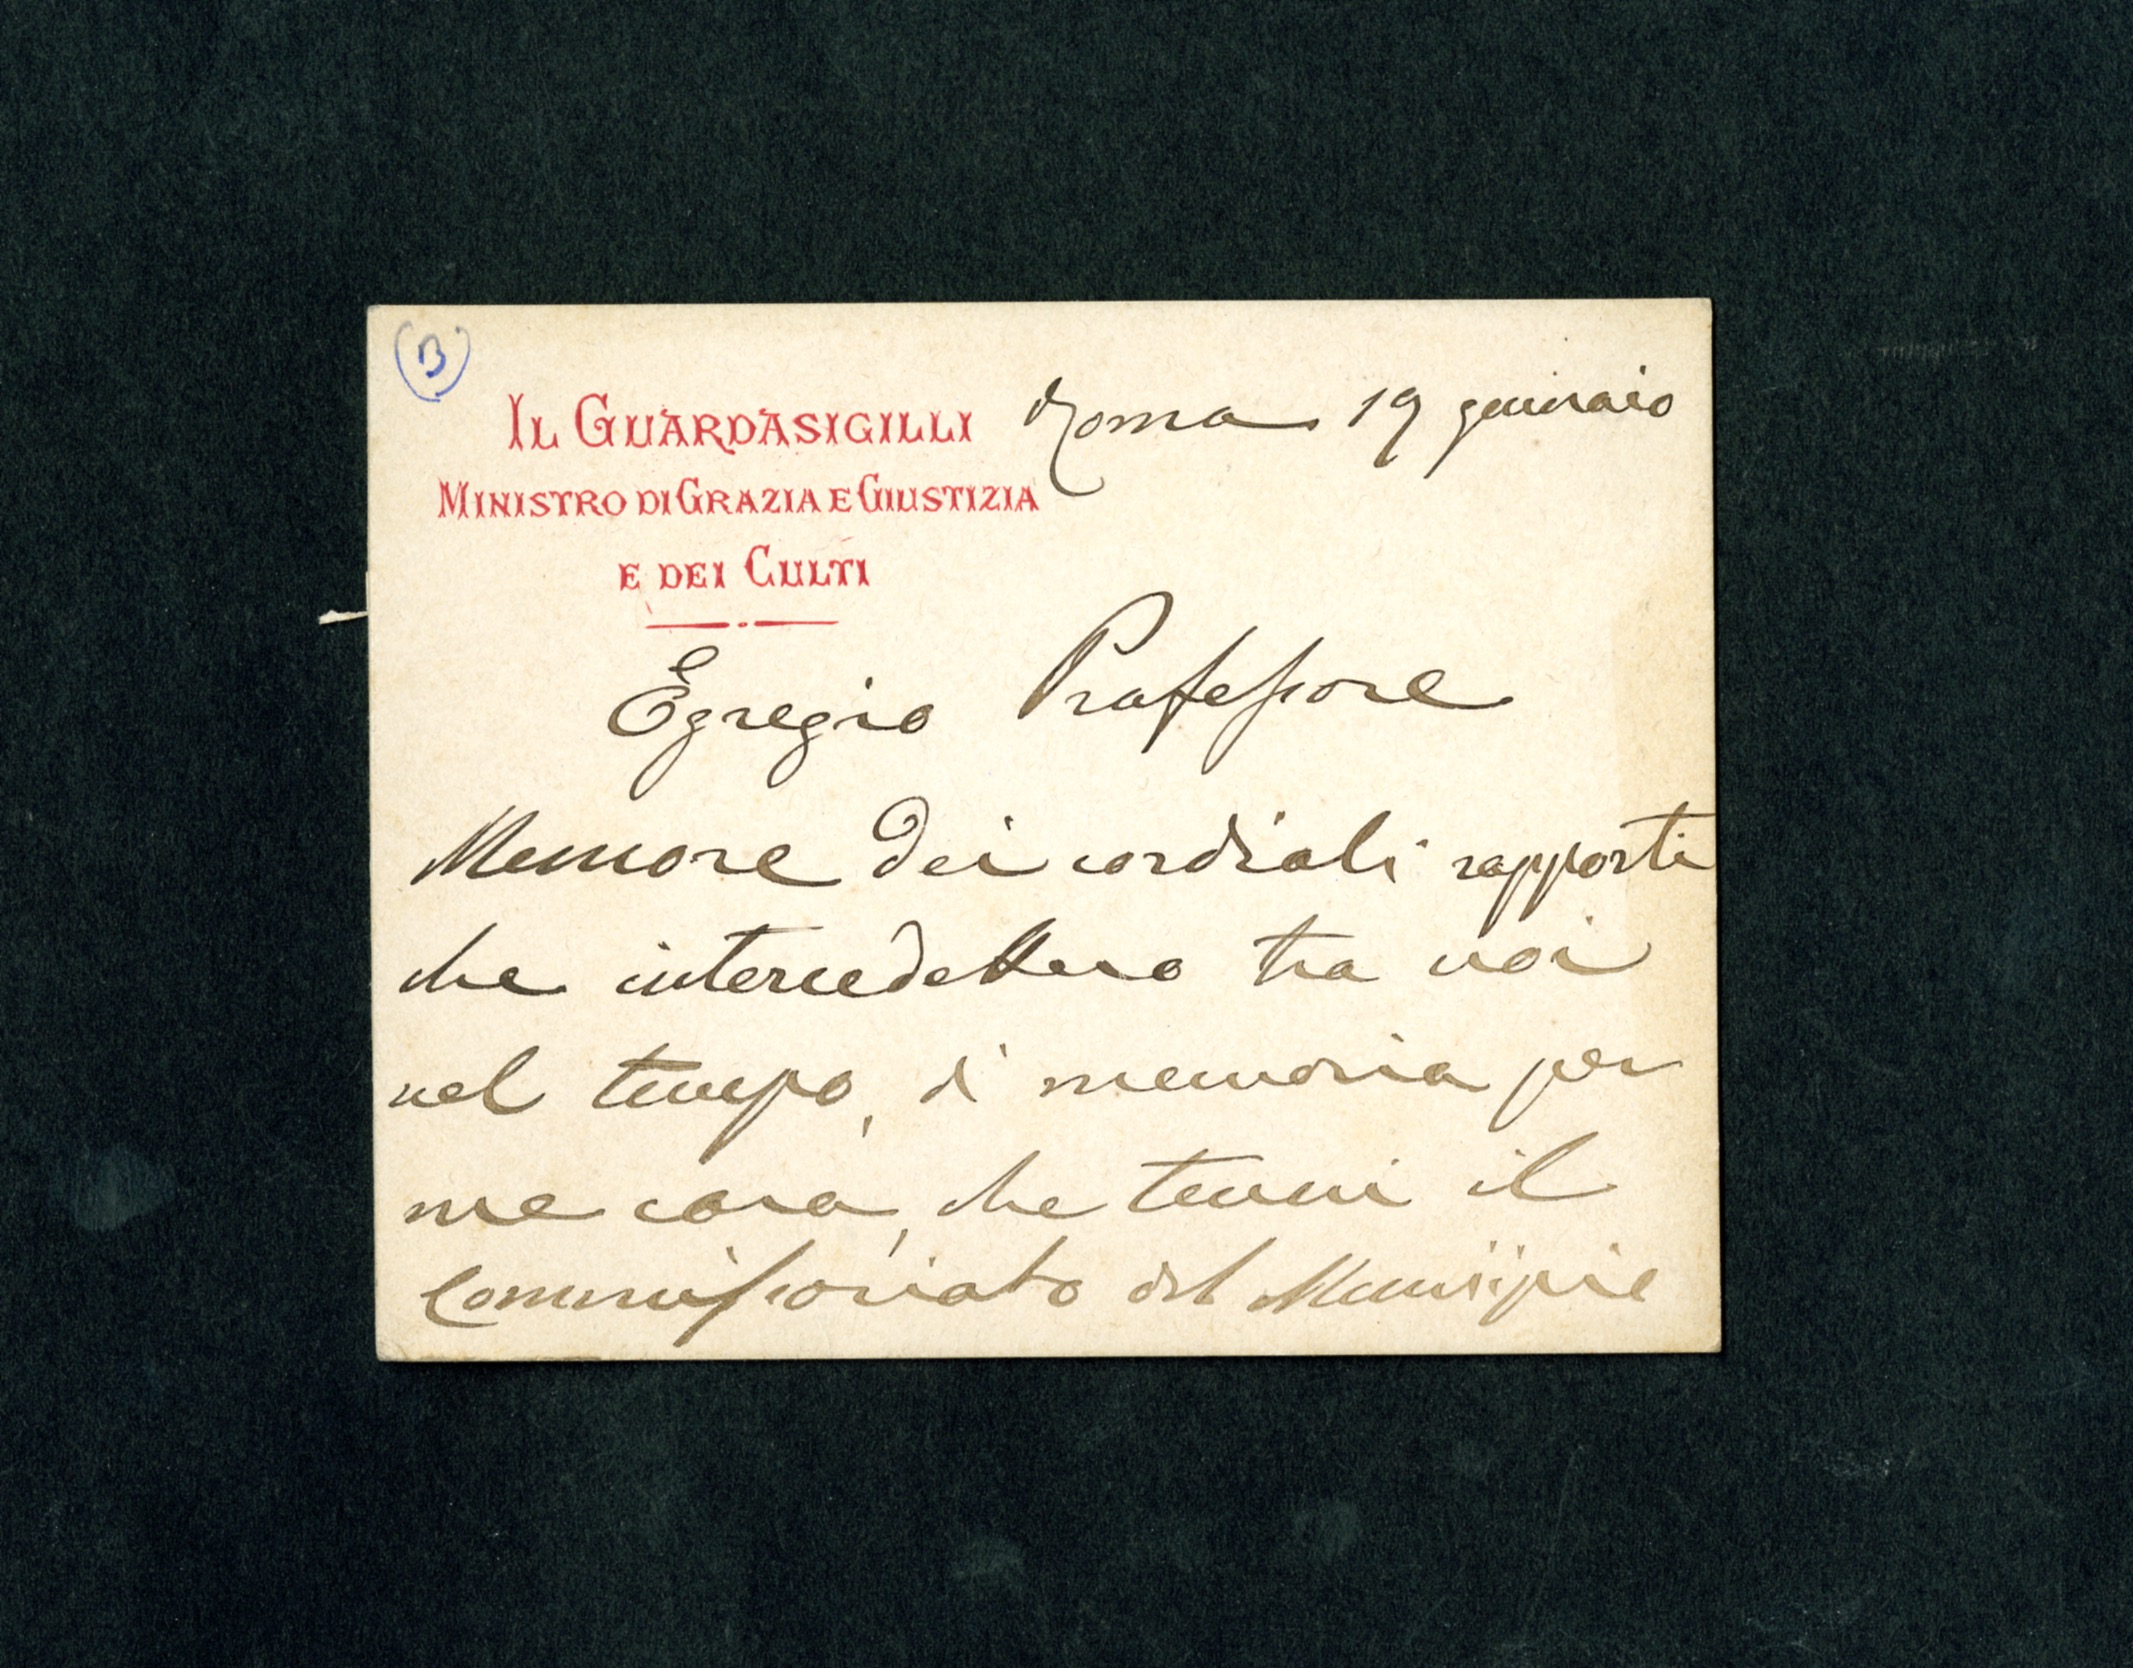 (B)
IL GUARDASIGILLI
MINISTRO DI GRAZIA E GIUSTIZIA
E DEI CULTI
Roma 19 gennaio
Egregio Professore
Memore dei cordiali rapporti
che intercedettero tra noi
nel tempo, di memoria per
me cara, che tenni il
Commissariato del Municipio